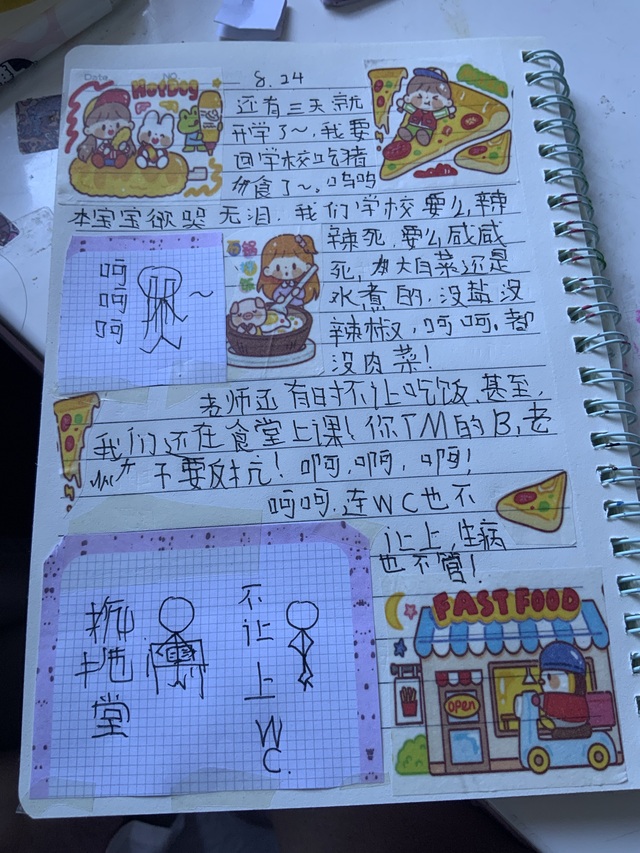 Date.
No
HotDog
8.24
还有三天就
开学了~,我要
回学校吃猪
食了~。呜呜
本宝宝欲哭无泪.我们学校要么辣
辣死,要么咸咸
死,大白菜还是
水煮的.没盐没
辣椒,呵呵.都
没肉菜!
呵
呵
呵
老师还有时不让吃饭.甚至,
我们还在食堂上课!你TM的B,老
不要反抗!啊,啊,啊!
呵呵.连WC也不
让上,生病
也不管!
拖
堂
不
让
上
WC.
FAST FOOD
Open